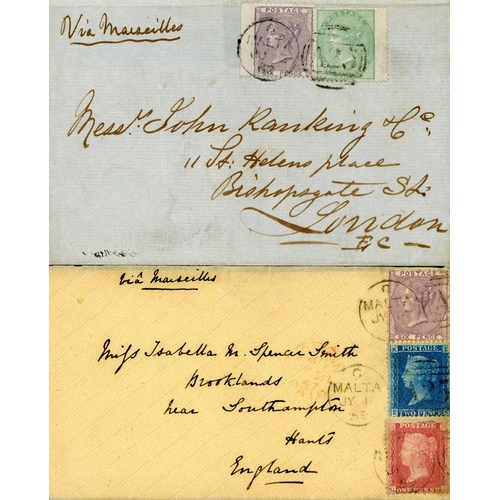 Via Marseilles
POSTAGE
SIX PENCE
MALTA
Messrs. John Ranking & Co.
11 St. Helens place
Bishopsgate St.
London
E C
viâ Marseilles
Miss Isabella M. Spencer Smith
Brooklands
near Southampton
Hants
England
POSTAGE
SIX PENCE
MALTA
C
MALTA
JY 1
59
POSTAGE
TWO PENCE
ONE PENNY